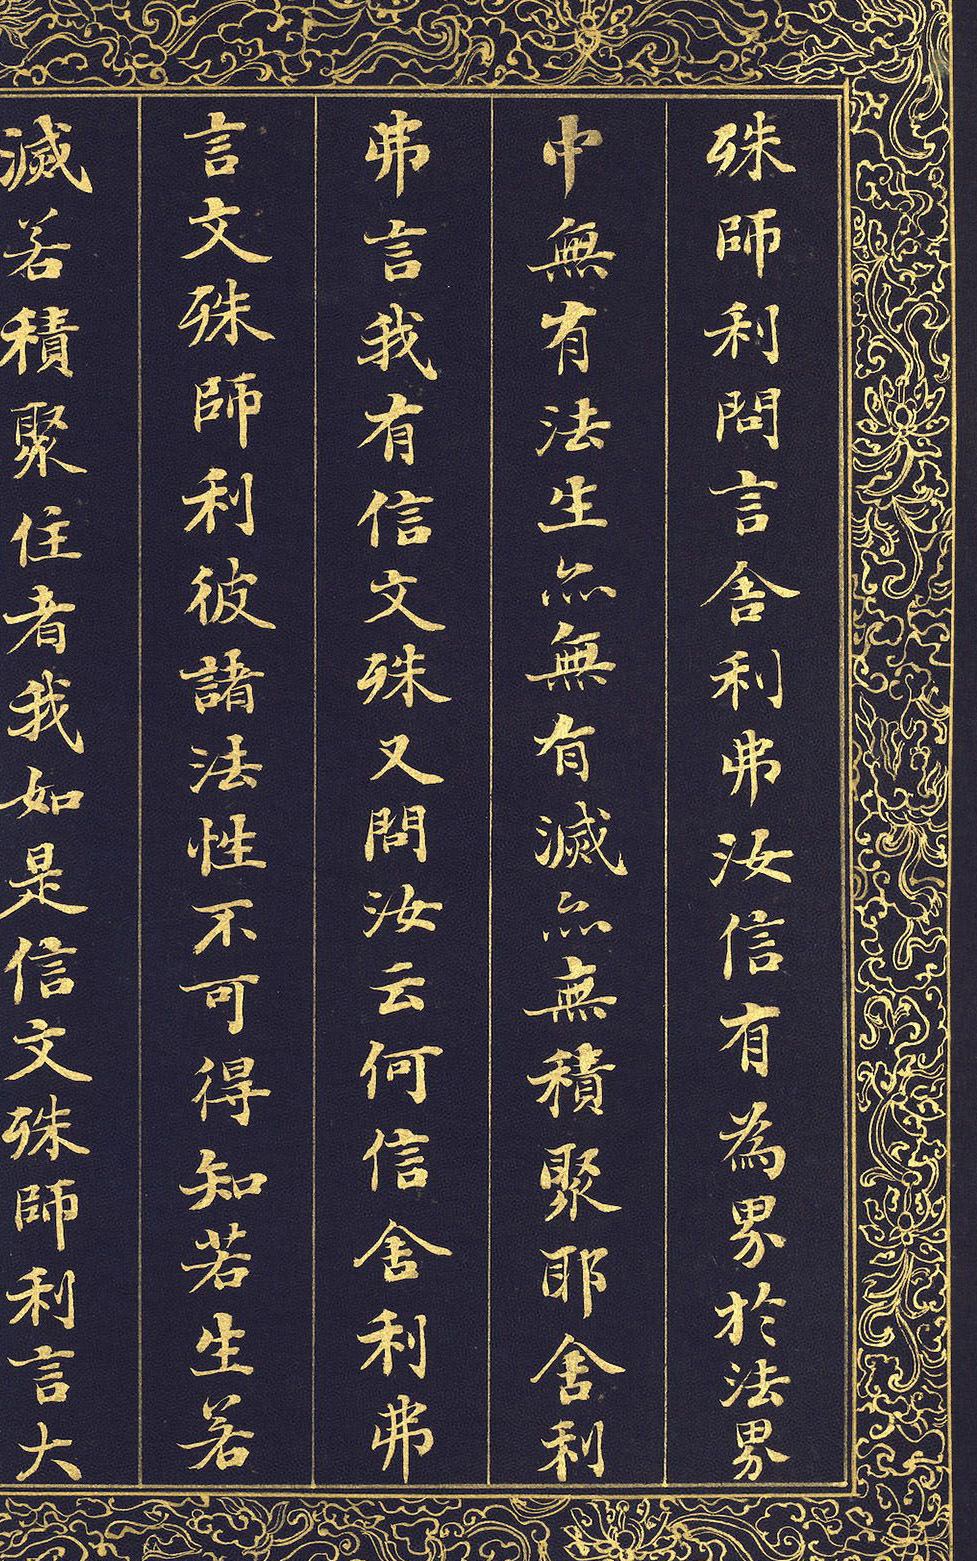 殊師利問言舍利弗汝信有為界於法界
中無有法生亦無有滅亦無積聚耶舍利
弗言我有信文殊又問汝云何信舍利弗
言文殊師利彼諸法性不可得知若生若
滅若積聚住者我如是信文殊師利言大